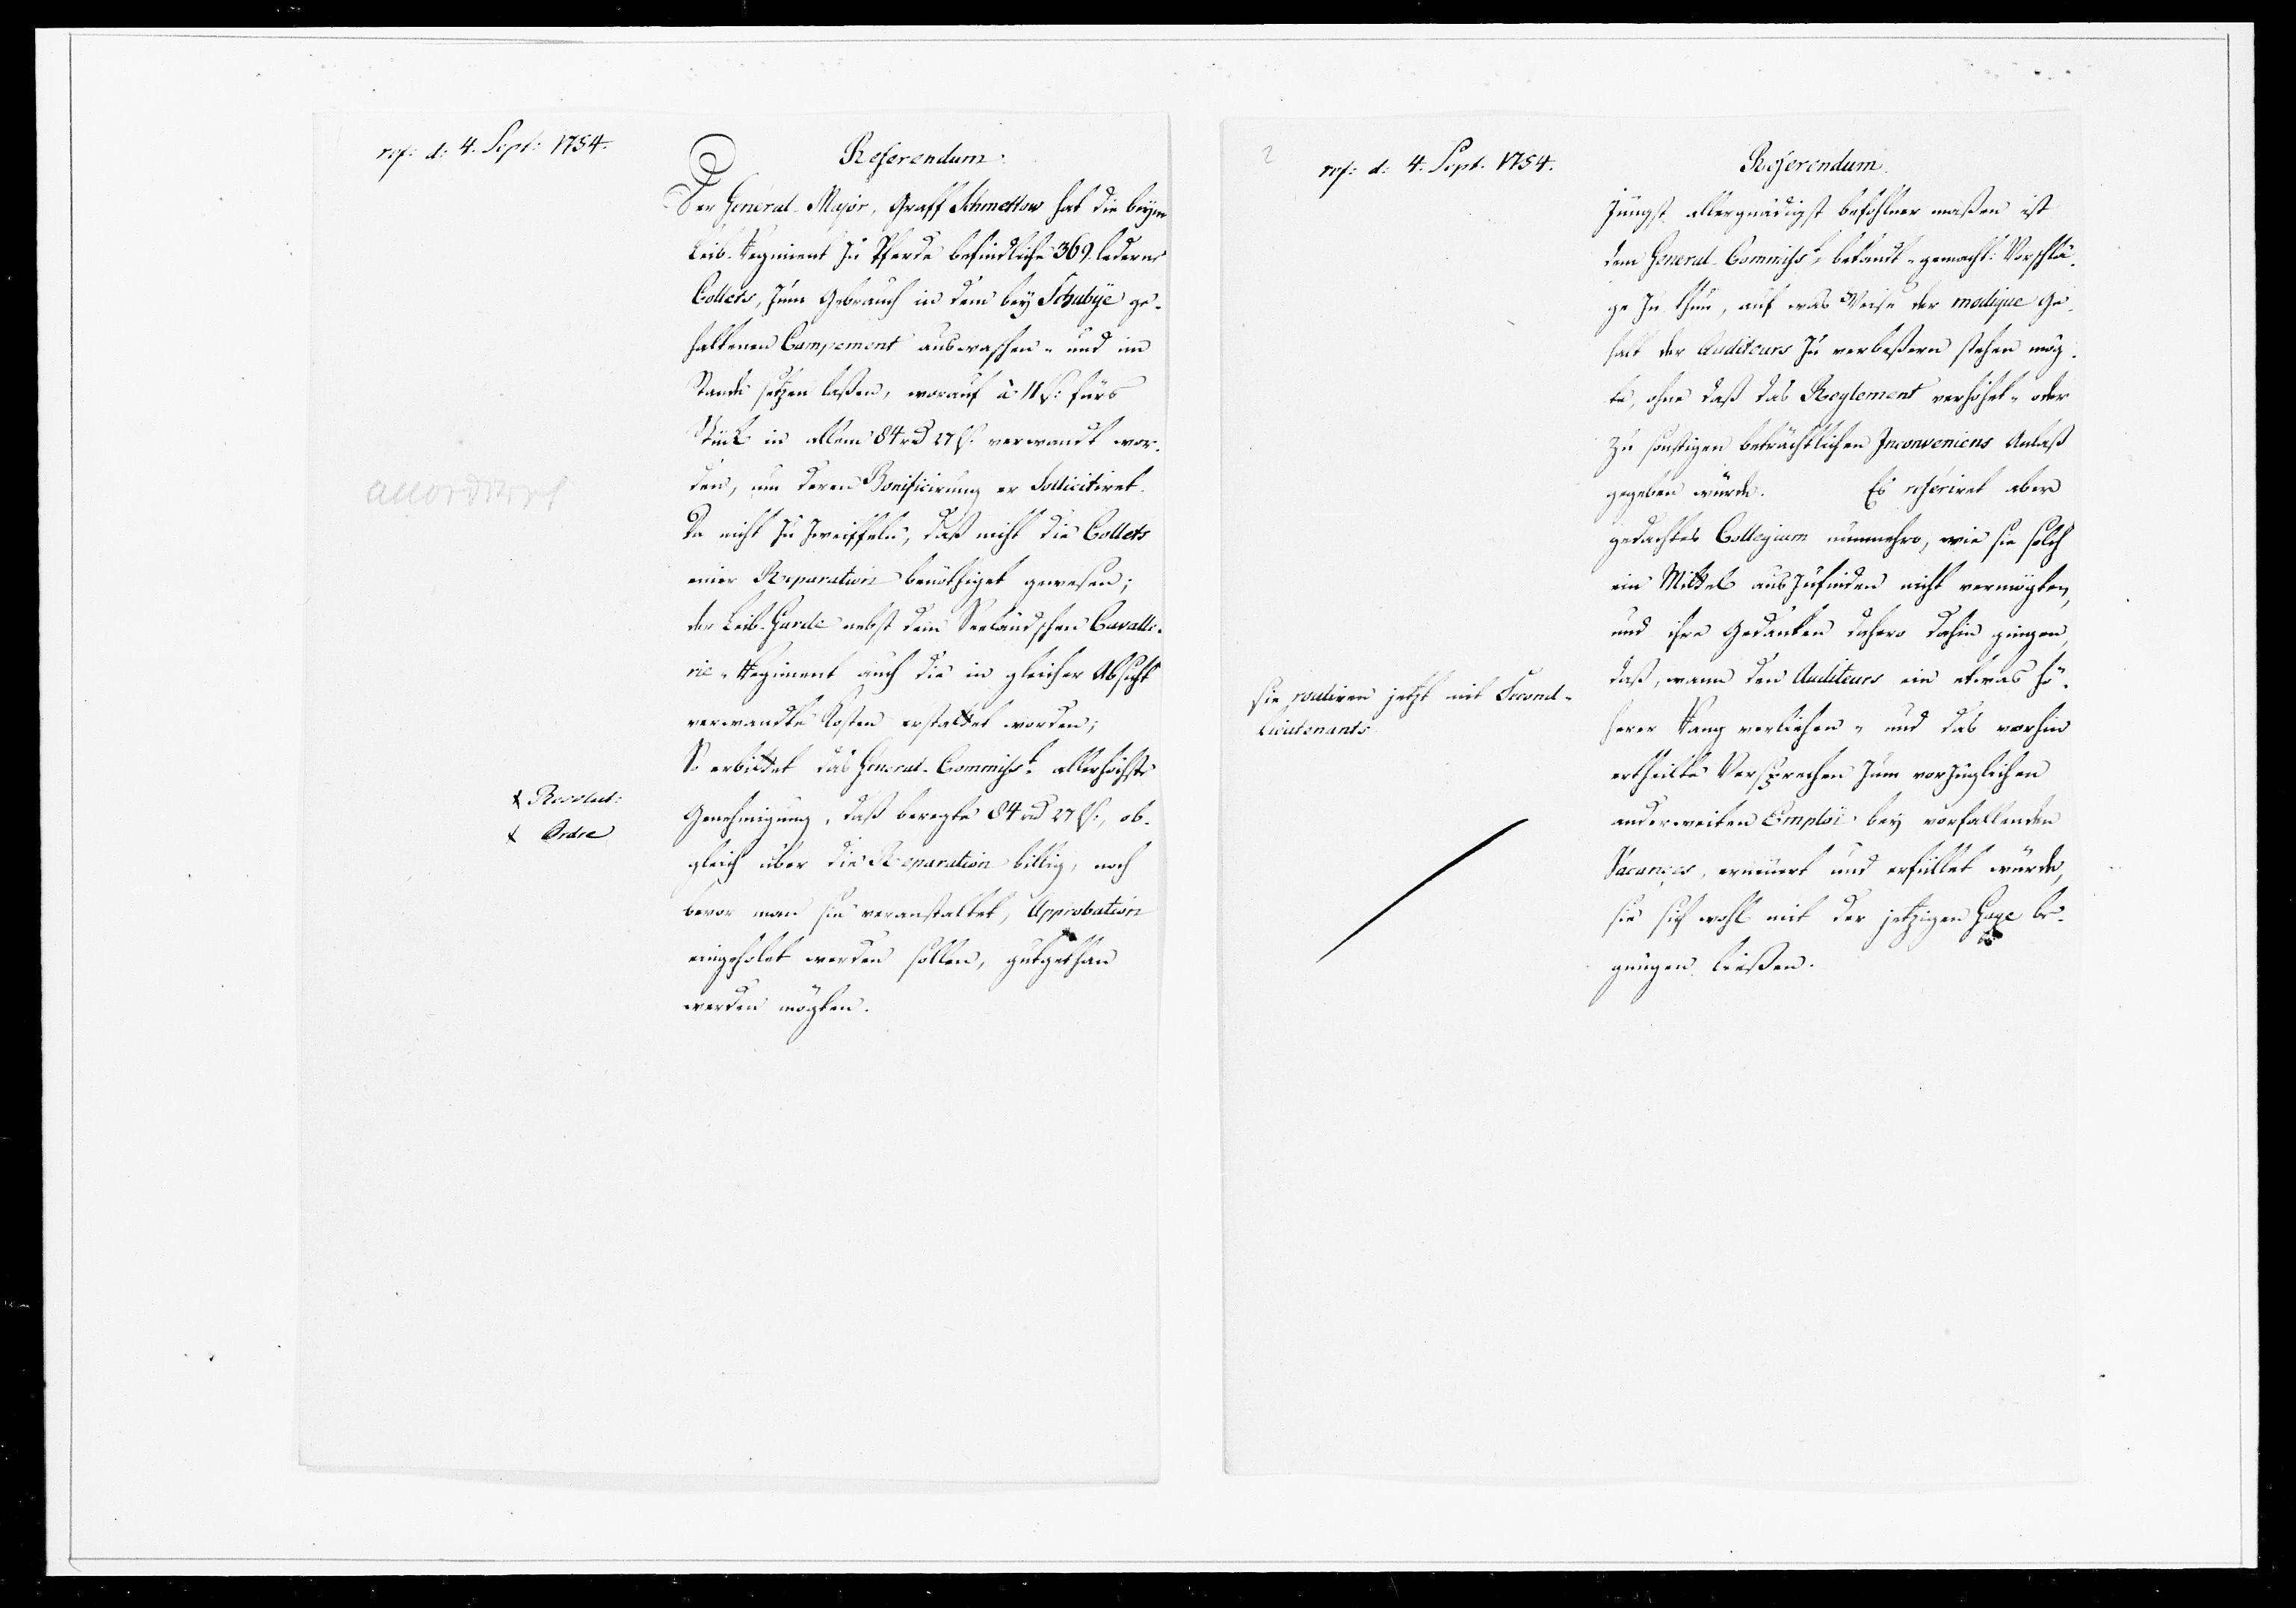 ref: d: 4. Sept: 1754.
Referendum.
Der General-Major, Graff Schmettow hat die beym
Leib-Regiment zu Pferde befindliche 369. lederne
Collets, zum Gebrauch in dem bey Schubÿe ge-
haltenen Campement auswaschen- und im
Stande setzen laßen, worauf à 11 ß: fürs
Stück in allem 84 rd 27 ß. verwandt wor-
den, um deren Bonificirung er sollicitiret.
Da nicht zu zweiffeln, daß nicht die Collets
accordiret
einer Reparation benöthiget gewesen;
der Leib-Garde nebst dem Seeländschen Cavalle-
rie-Regiment auch die in gleicher Absicht
verwandte Kosten erstattet worden;
So erbittet das General-Commisst. allerhöchste
Genehmigung, daß beregte 84 rd 27 ß:, ob-
gleich über die Reparation billig, noch
bevor man sie veranstaltet, Approbation
eingeholet werden sollen, gutgethan
werden mögten.
Resolut:
Ordre
2
ref: d: 4. Sept. 1754.
Referendum.
Jüngst allergnädigst befohlner maßen ist
dem General-Commisst. bekandt-gemacht: Vorschlä-
ge zu thun, auf was Weise der modique Ge-
halt der Auditeurs zu verbeßern stehen mög-
te, ohne daß das Reglement verhöhet- oder
zu sonstigen beträchtlichen Inconveniens Anlaß
gegeben würde. Es referiret aber
gedachtes Collegium nunmehro, wie sie solch
ein Mittel auszufinden nicht vermögten,
und ihre Gedanken dahero dahin gingen,
daß, wann den Auditeurs ein etwas hö-
herer Rang verliehen- und das vorhin
ertheilte Versprechen zum vorzüglichen
anderweiten Emploi bey vorfallenden
Vacances, erneuert und erfüllet würde,
sie sich wohl mit der jetzigen Gage be-
gnügen ließen.
sie rouliren jetzt mit Second-
Lieutenants